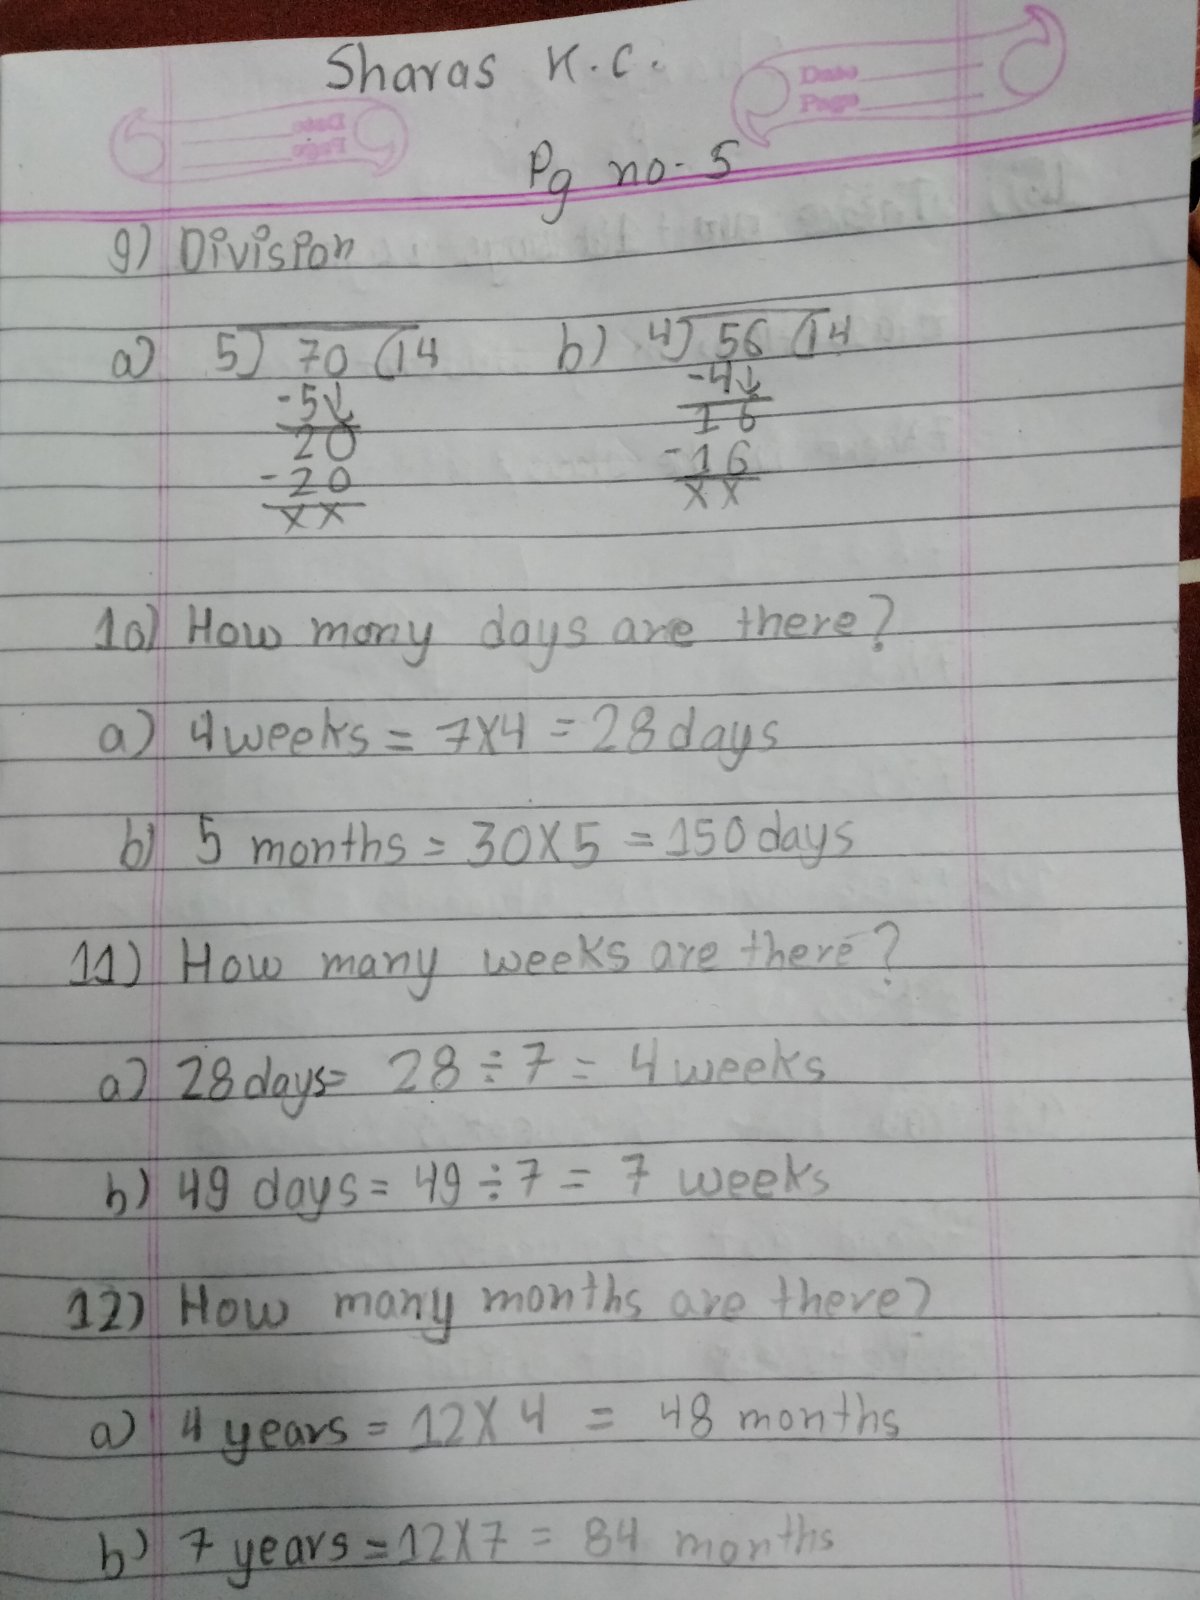 Sharas K.C.
Date
Page
Date
Page
Pg no- 5
9) Division
a) 5) 70 (14
-5↓
20
-20
x x
b) 4) 56 (14
-4↓
16
-16
x x
10) How many days are there?
a) 4 weeks = 7x4 = 28 days
b) 5 months = 30x5 = 150 days
11) How many weeks are there?
a) 28 days= 28÷7 = 4 weeks
b) 49 days = 49÷7 = 7 weeks
12) How many months are there?
a) 4 years = 12x4 = 48 months
b) 7 years = 12x7 = 84 months